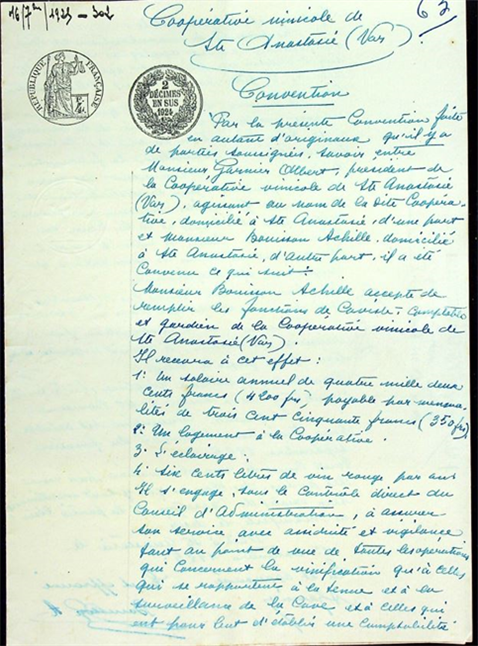 16/7bre/1925 - 302
63
Coopérative vinicole de
Ste Anastasie (Var).
RÉPUBLIQUE FRANÇAISE
2
DÉCIMES
EN SUS
1925
Convention
Par la présente Convention faite
en autant d'originaux qu'il y a
de parties soussignées, savoir entre
Monsieur Garnier Albert, président de
la Coopérative vinicole de Ste Anastasie
(Var), agissant au nom de la dite Coopéra-
tive, domicilié à Ste Anastasie, d'une part
et Monsieur Bouisson Achille domicilié
à Ste Anastasie, d'autre part, il a été
Convenu ce qui suit:
Monsieur Bouisson Achille accepte de
remplir les fonctions de Caviste, Comptable
et gardien de la Coopérative vinicole de
Ste Anastasie (Var).
Il recevra à cet effet:
1: Un salaire annuel de quatre mille deux
cents francs (4200 frs) payable par mensua-
lités de trois cent cinquante francs (350 frs)
2: Un logement à la Coopérative.
3: L'éclairage;
4: Six cents litres de vin rouge par an
Il s'engage, sous le Contrôle direct du
Conseil d'Administration, à assurer
son service avec assiduité et vigilance
tant au point de vue de toutes les opérations
qui Concernent la vinification qu'à celles
qui se rapportent à la tenue et à la
surveillance de la Cave et à celles qui
ont pour but d'établir une Comptabilité